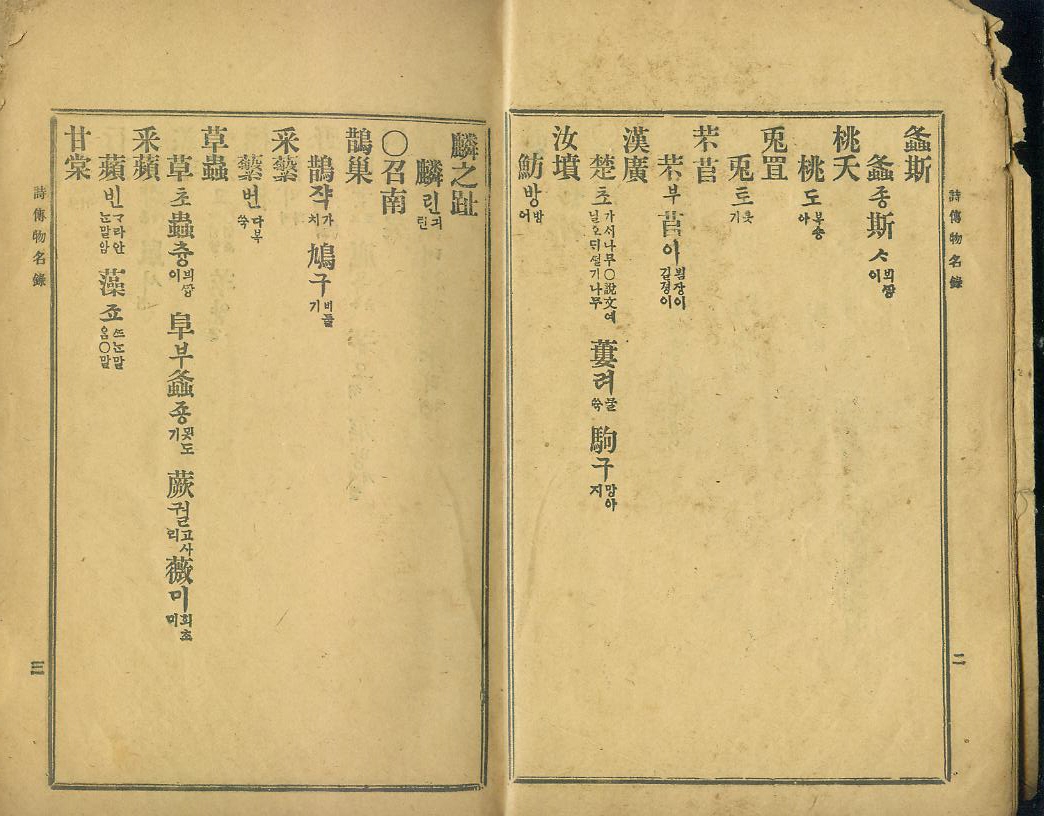 詩傳物名錄
螽斯
螽종斯ᄉᆞ 뵈짱이
桃夭
桃도 복숑아
兎罝
兎토 톳기
芣苢
芣부苢이 뵘장이 길졍이
漢廣
楚초 가시나무○說文에 蔞려 물쑥 駒구 망아지
汝墳
魴방 방어
二
麟之趾
麟린 긔린
○召南
鵲巢
鵲쟉 가치 鳩구 비둘기
采蘩
蘩번 다복쑥
草蟲
草초蟲츙 뵈짱이 阜부螽죵 묏도기 蕨궐 고사리 薇미 회초미
采蘋
蘋빈 藻조
甘棠
詩傳物名錄
三